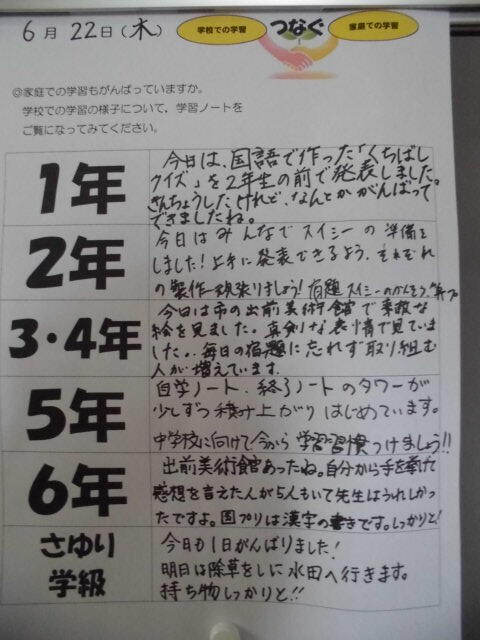 6月22日(木)
学校での学習 つなぐ 家庭での学習
@家庭での学習もがんばっていますか。
学校での学習の様子について、学習ノートを
ご覧になってみてください。
1年
今日は、国語で作った「くちばし
クイズ」を2年生の前で発表しました。
きんちょうしたけれど、なんとかがんばって
できましたね。
2年
今日はみんなでスイミーの準備を
しました!上手に発表できるよう、それぞれ
の製作 頑張りましょう!宿題 スイミーのかんそう、
3・4年
今日は市の出前美術館で素敵な
絵を見ました。真剣な表情で見ていま
した。毎日の宿題に忘れず取り組む
人が増えています。
5年
自学ノート、終了ノートのタワーが
少しずつ積み上がりはじめています。
中学校に向けて今から学習習慣つけましょう!!
6年
出前美術館あったね。自分から手を挙げて
感想を言えた人が5人もいて先生はうれしかっ
たですよ。国プリは漢字の書きです。しっかりと!
さゆり
学級
今日も1日がんばりました!
明日は除草をしに水田へ行きます。
持ち物しっかりと!!